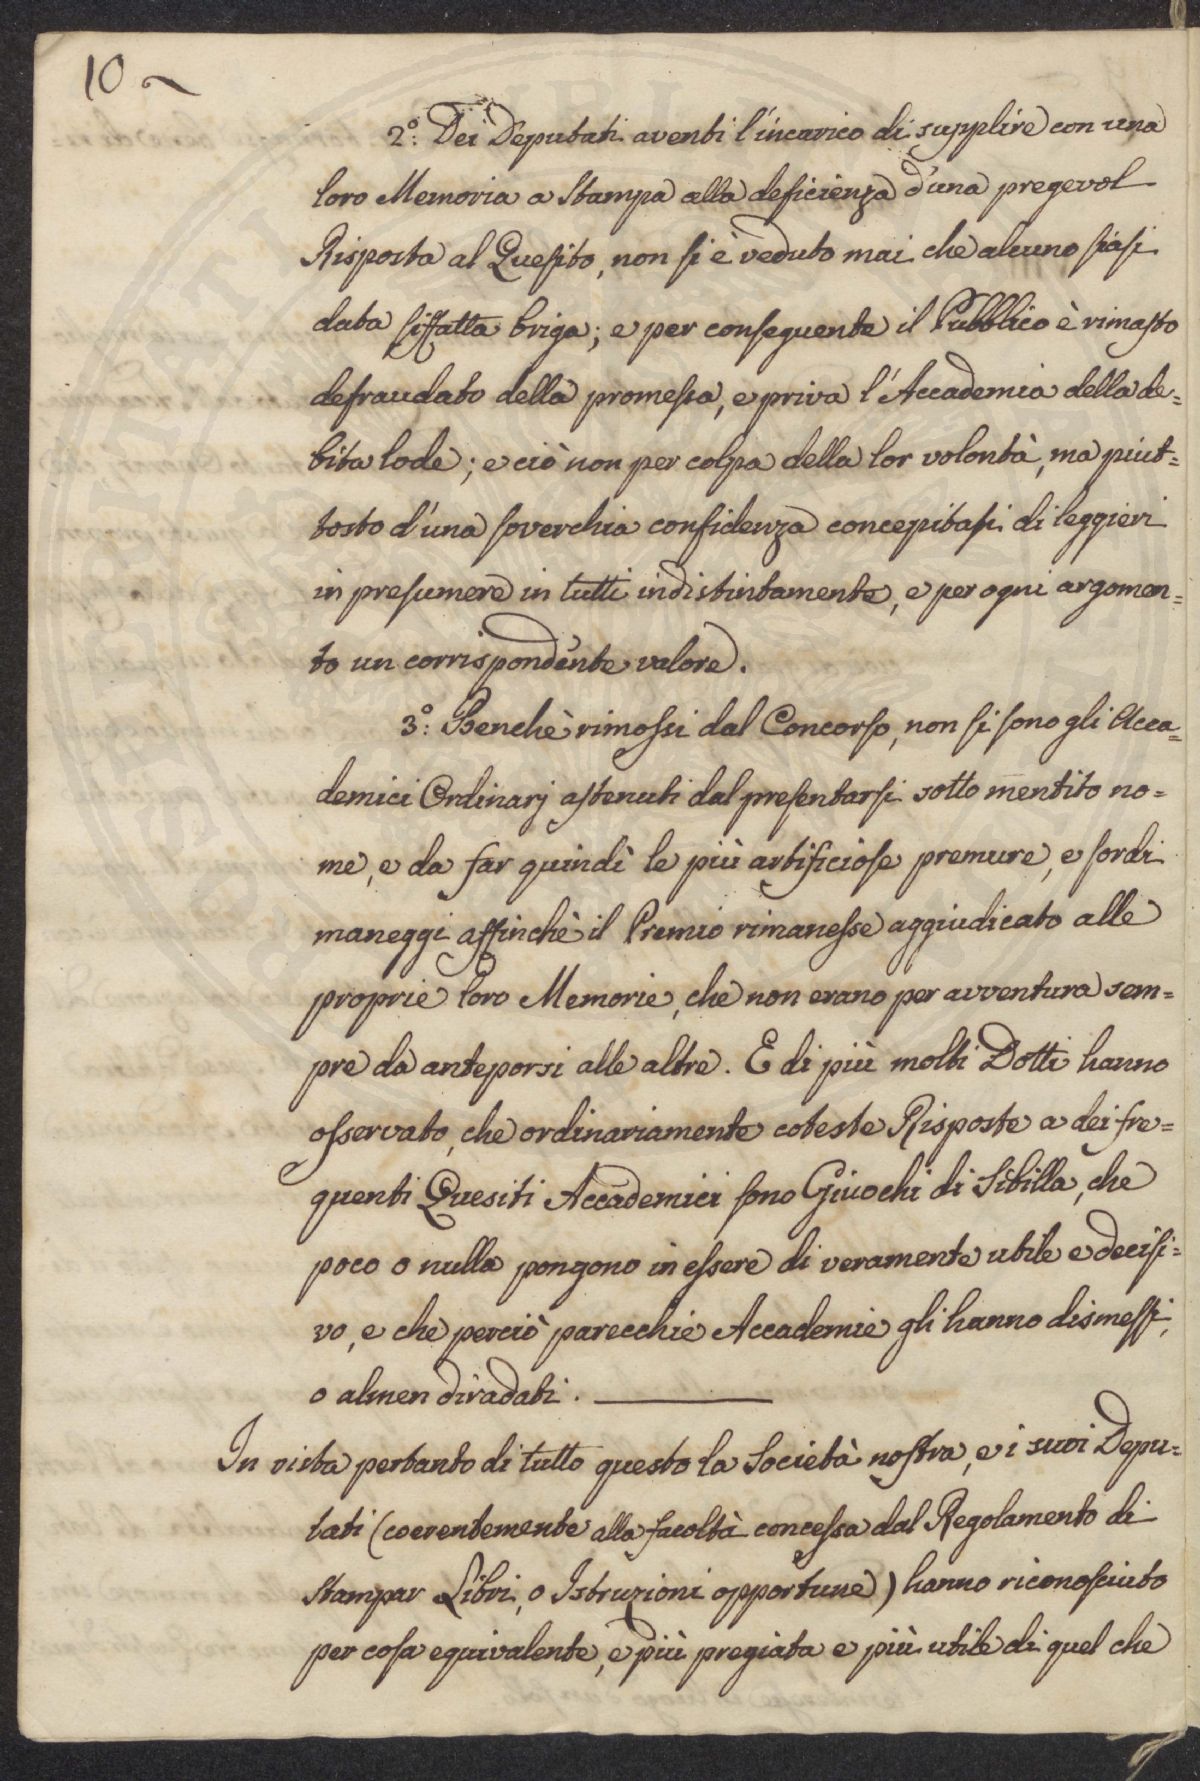 10
2.º: Dei Deputati aventi l'incarico di supplire con una
loro Memoria a Stampa alla deficienza d'una pregevol
Risposta al Quesito, non si è veduto mai che alcuno siasi
data siffatta briga; e per conseguente il Pubblico è rimasto
defraudato della promessa, e priva l'Accademia della de=
bita lode; e ciò non per colpa della lor volontà, ma piut=
tosto d'una soverchia confidenza concepitasi di leggieri
in presumere in tutti indistintamente, e per ogni argomen=
to un corrispondente valore.
3.º: Benchè rimossi dal Concorso, non si sono gli Acca=
demici Ordinarj astenuti dal presentarsi sotto mentito no=
me, e da far quindi le più artificiose premure, e sordi
maneggi affinchè il Premio rimanesse aggiudicato alle
proprie loro Memorie, che non erano per avventura sem=
pre da anteporsi alle altre. E di più molti Dotti hanno
osservato, che ordinariamente coteste Risposte a dei fre=
quenti Quesiti Accademici sono Giuochi di Sibilla, che
poco o nulla pongono in essere di veramente utile e decisi=
vo, e che perciò parecchie Accademie gli hanno dismessi,
o almen diradati.
In vista pertanto di tutto questo la Società nostra, e i suoi Depu=
tati (coerentemente alla facoltà concessa dal Regolamento di
Stampar Libri, o Istruzioni opportune) hanno riconosciuto
per cosa equivalente, e più pregiata e più utile di quel che